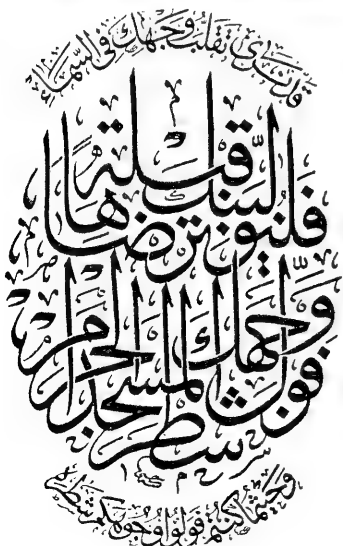 قد نرى تقلب وجهك في السماء
فلنولينك قبلة ترضاها
فول وجهك شطر المسجد الحرام
وحيثما كنتم فولوا وجوهكم شطره